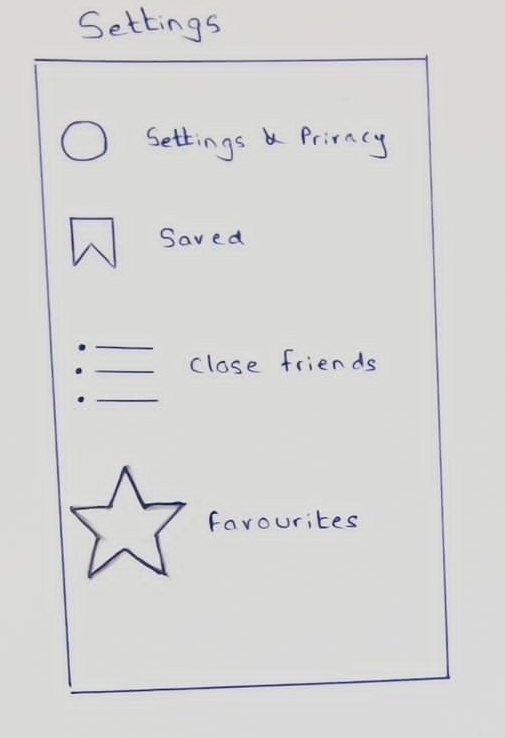 Settings
Settings & Privacy
Saved
Close friends
favourites